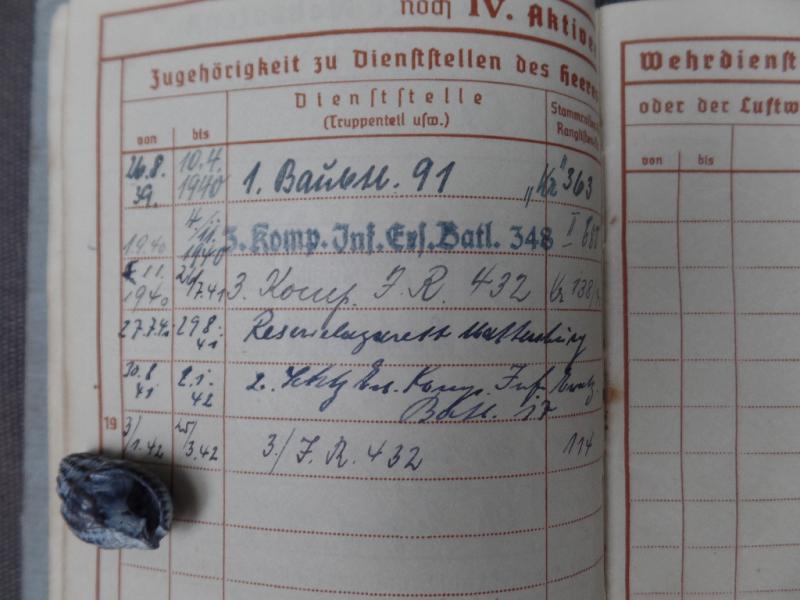 noch IV. Aktive
Zugehörigkeit zu Dienststellen des Heeres
von bis
Dienststelle
(Truppenteil usw.)
26.8. 39. 10.4. 1940 1. Baubtl. 91 "Kr" 363
1940 1940 3. Komp. Inf. Ers. Batl. 348 II
11. 1940 17.41 3. Komp. J. R. 432 Kr 138
29.8. 41 Reservelazarett
30.8 41 2.1. 42 2. Komp. Inf.
Batl. 17
19 3/ 1.42 25/ 3.42 3/ J. R. 432 114
Wehrdienst
oder der Luftw
von bis